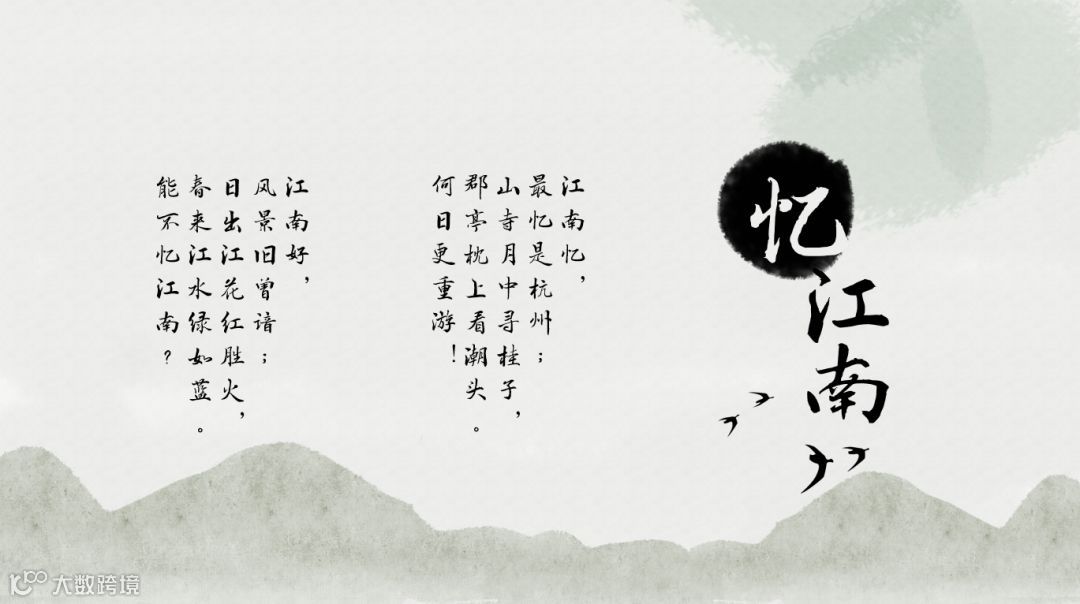 忆江南
江南忆，
最忆是杭州；
山寺月中寻桂子，
郡亭枕上看潮头。
何日更重游！
江南好，
风景旧曾谙；
日出江花红胜火，
春来江水绿如蓝。
能不忆江南？
大数跨境